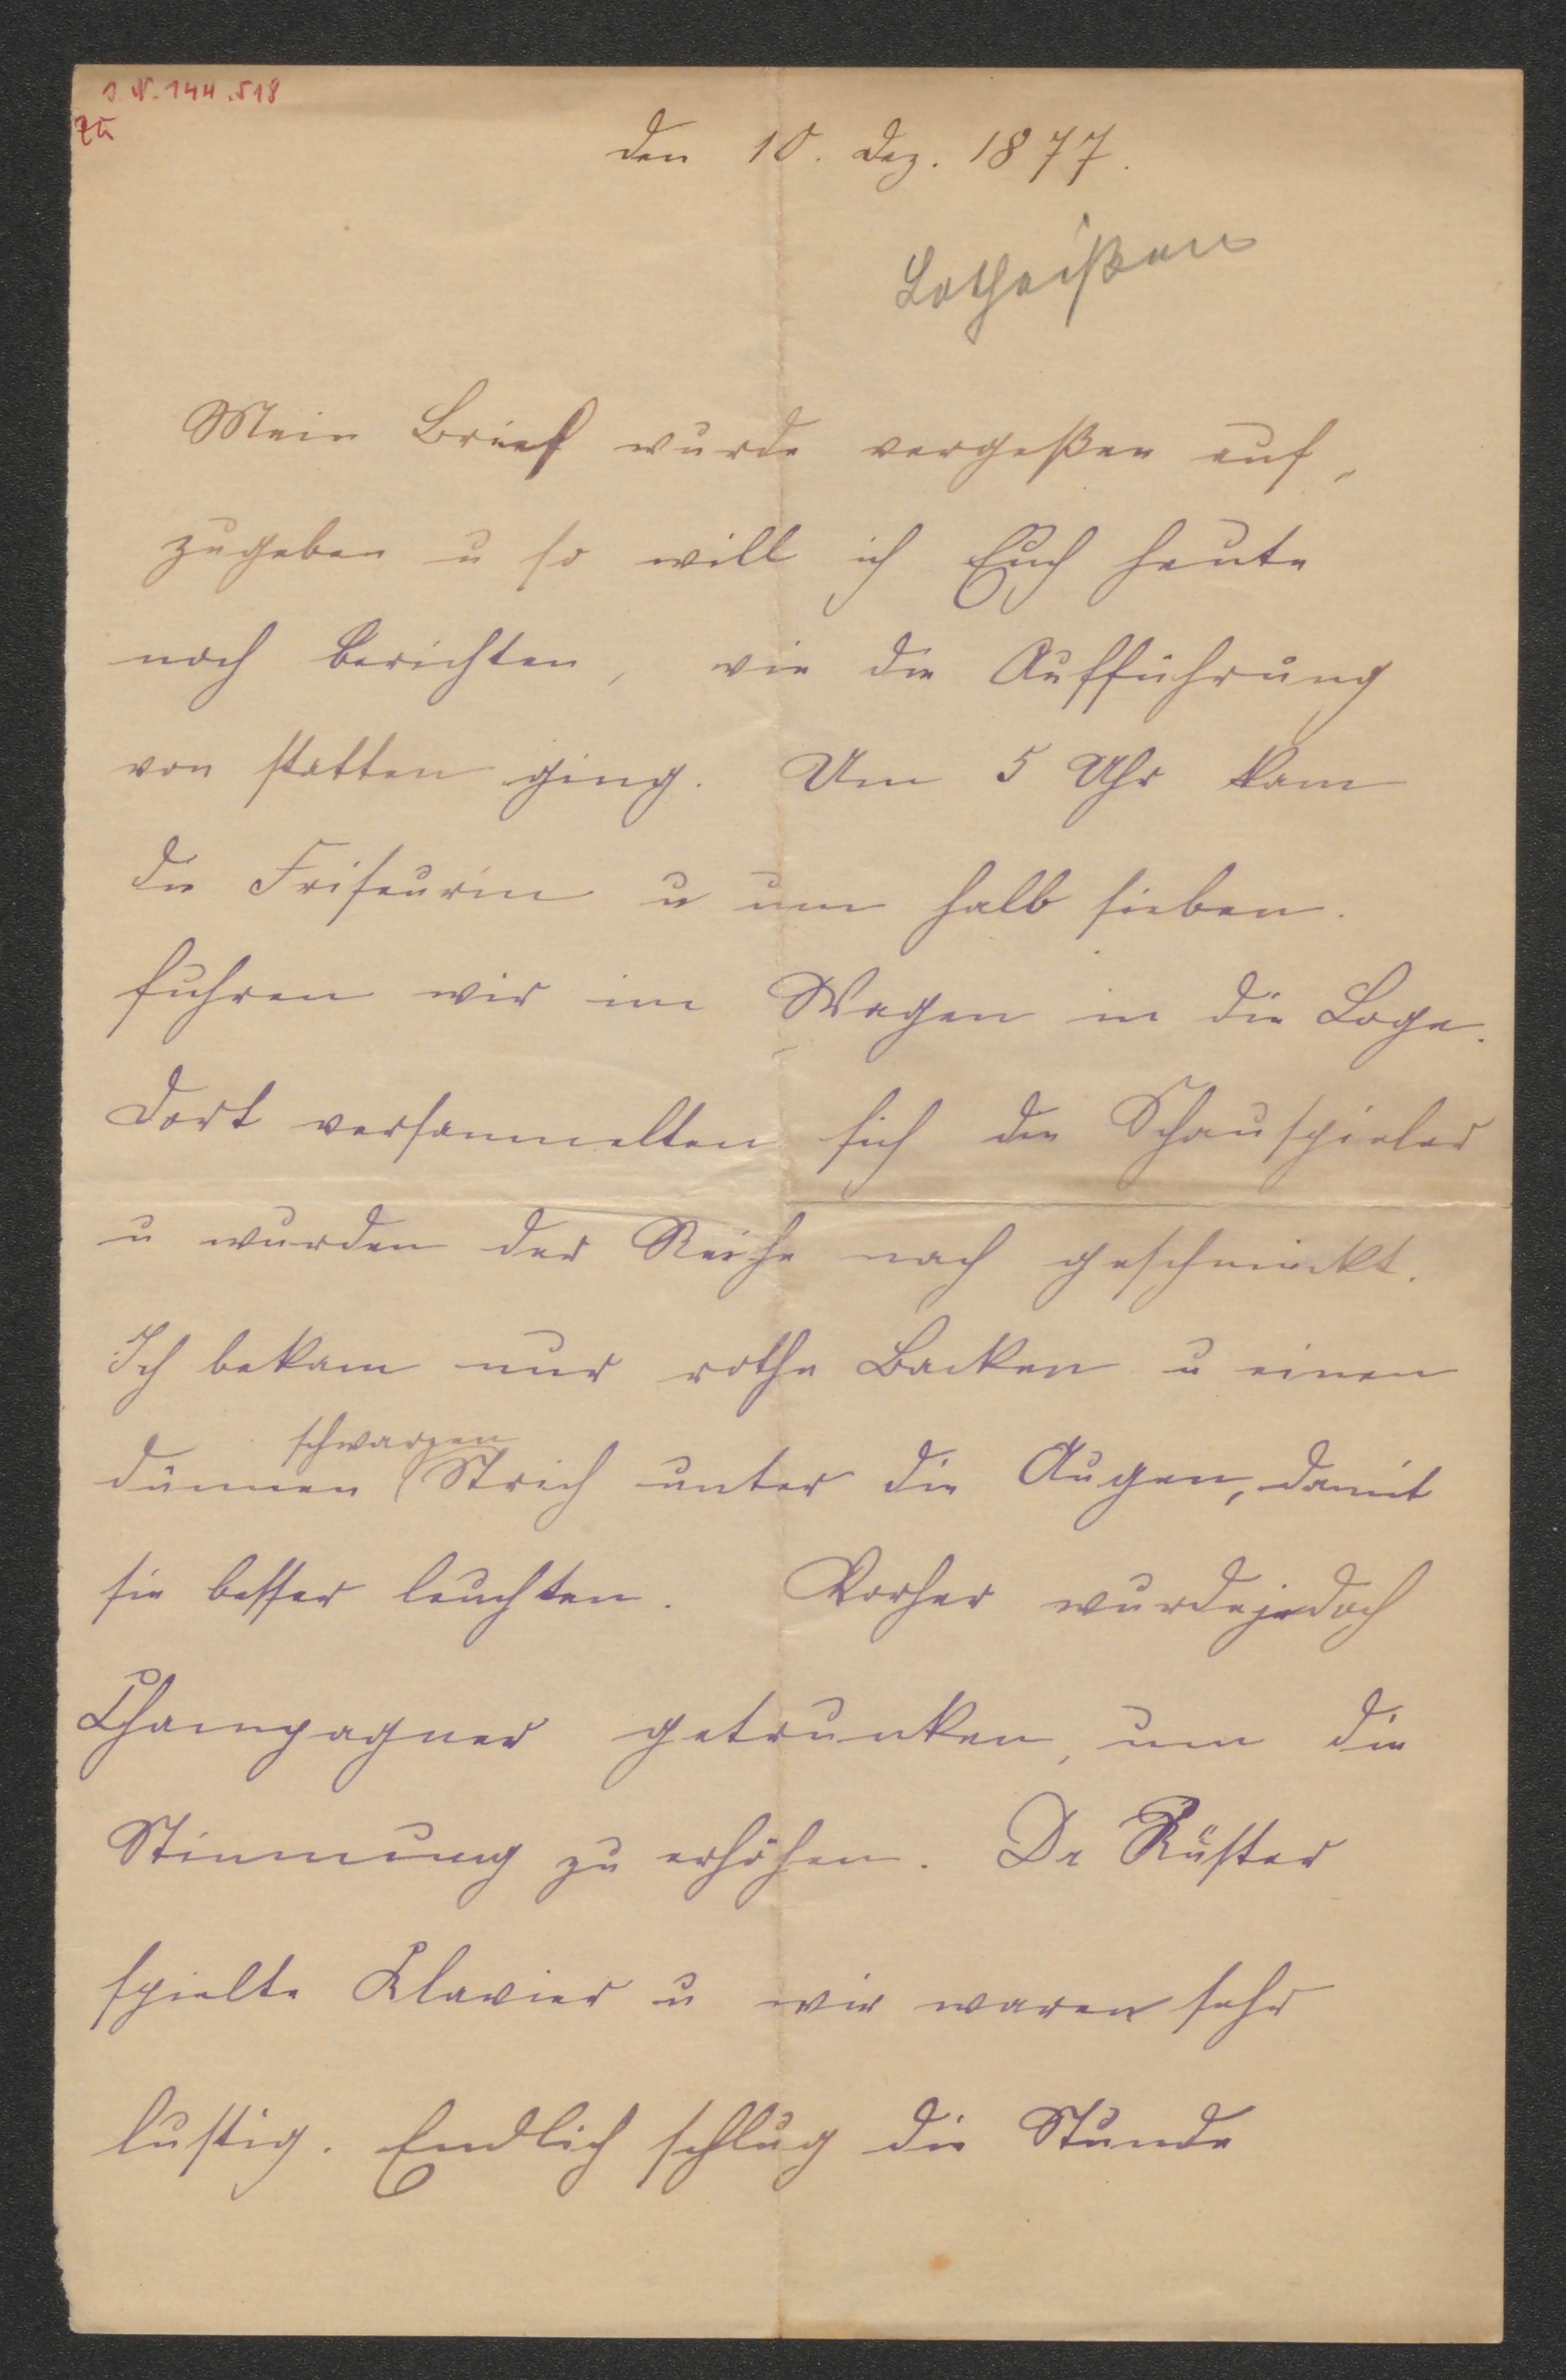 I. N. 144.518
zu
den 10. Dez. 1877.
Lotheißen
Mein Brief wurde vergeßen auf,
zugeben u so will ich Euch heute
noch berichten, wie die Aufführung
von statten ging. Um 5 Uhr kam
die Friseurin u um halb sieben.
fuhren wir im Wagen in die Loge.
Dort versammelten sich die Schauspieler
u wurden der Reihe nach geschminkt.
Ich bekam nur rothe Backen u einen
schwarzen
dünnen Strich unter die Augen, damit
sie besser leuchten. Vorher wurde jedoch
Champagner getrunken, um die
Stimmung zu erhöhen. Dr Küster
spielte Klavier u wir waren sehr
lustig. Endlich schlug die Stunde